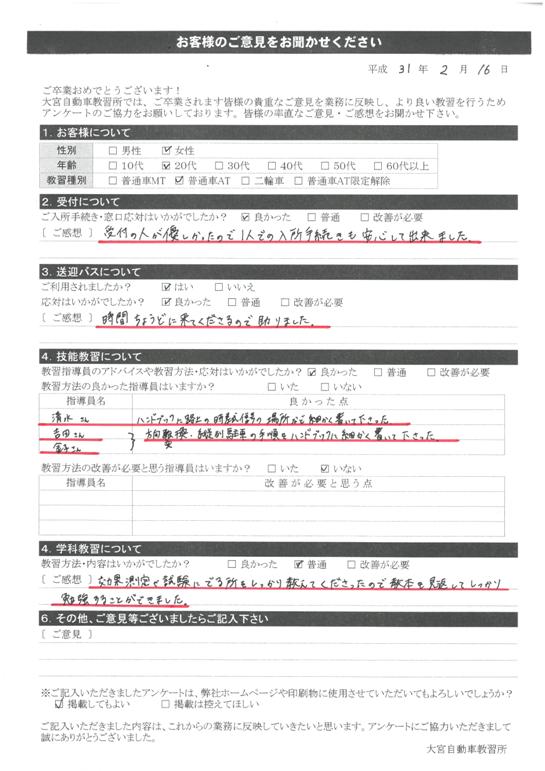 お客様のご意見をお聞かせください
平成 31 年 2 月 16 日
ご卒業おめでとうございます！
大宮自動車教習所では、ご卒業されます皆様の貴重なご意見を業務に反映し、より良い教習を行うため
アンケートのご協力をお願いしております。皆様の率直なご意見・ご感想をお聞かせ下さい。
1. お客様について
性別 □男性 ☑女性
年齢 □10代 ☑20代 □30代 □40代 □50代 □60代以上
教習種別 □普通車MT ☑普通車AT □二輪車 □普通車AT限定解除
2. 受付について
ご入所手続き・窓口応対はいかがでしたか？ ☑良かった □普通 □改善が必要
［ご感想］ 受付の人が優しかったので1人での入所手続きも安心して出来ました。
3. 送迎バスについて
ご利用されましたか？ ☑はい □いいえ
応対はいかがでしたか？ ☑良かった □普通 □改善が必要
［ご感想］ 時間ちょうどに来てくださるので助りました。
4. 技能教習について
教習指導員のアドバイスや教習方法・応対はいかがでしたか？ ☑良かった □普通 □改善が必要
教習方法の良かった指導員はいますか？ □いた □いない
指導員名 良かった点
清水さん ハンドブックに路上の時差式信号の場所まで細かく書いて下さった
吉田さん 方向転換・縦列駐車の手順をハンドブックに細かく書いて下さった。
金子さん
教習方法の改善が必要と思う指導員はいますか？ □いた ☑いない
指導員名 改善が必要と思う点
4. 学科教習について
教習方法・内容はいかがでしたか？ □良かった ☑普通 □改善が必要
［ご感想］ 効果測定や試験にでる所をしっかり教えてくださったので教本を見返してしっかり
勉強することができました。
6. その他、ご意見等ございましたらご記入下さい
［ご意見］
※ご記入いただきましたアンケートは、弊社ホームページや印刷物に使用させていただいてもよろしいでしょうか？
☑掲載してもよい □掲載は控えてほしい
ご記入いただきました内容は、これからの業務に反映していきたいと思います。アンケートにご協力いただきまして
誠にありがとうございました。
大宮自動車教習所